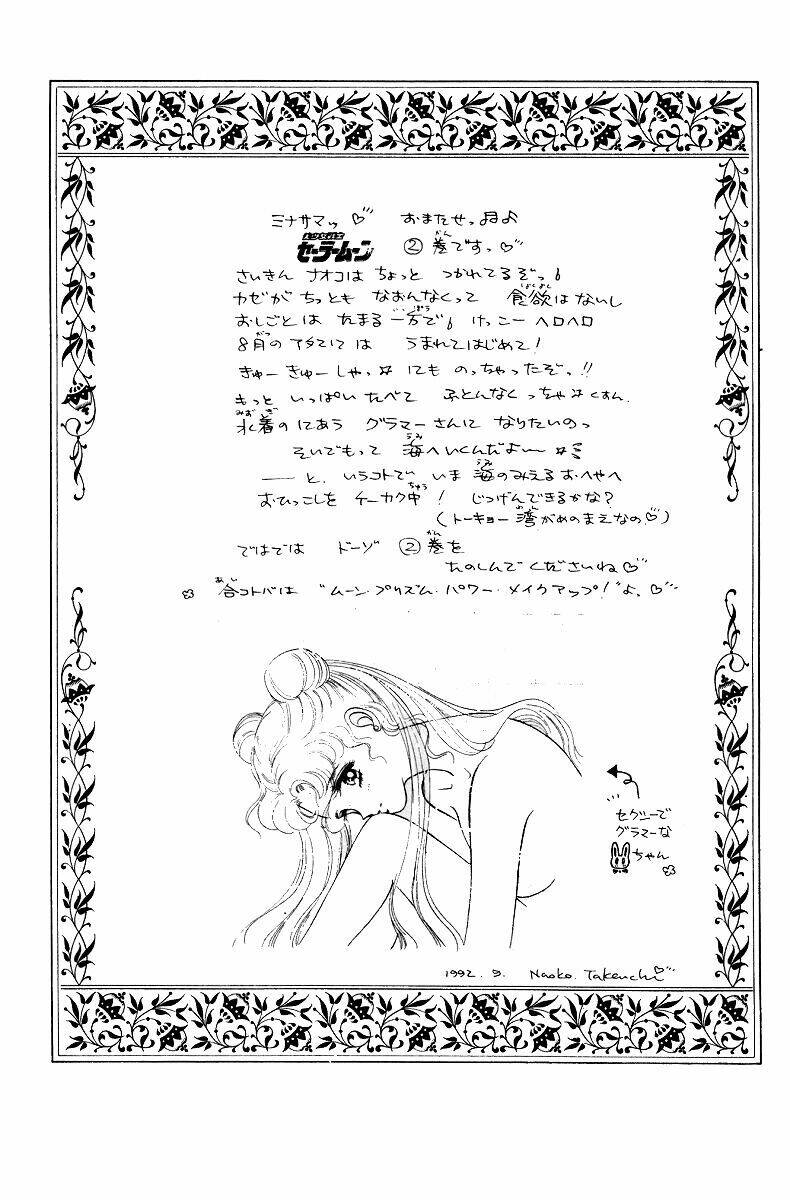 ミナサマッ♡ おまたせっ♬♪
美少女戦士セーラームーン ②巻ですっ♡
さいきん ナオコは ちょっと つかれてるぞっ
カゼが ちっとも なおんなくって 食欲はないし
おしごとは たまる一方で けっこー ヘロヘロ
8月のアタマには うまれてはじめて!
きゅーきゅーしゃっ☆にも のっちゃったぞっ!!
もっと いっぱい たべて ふとんなくっちゃ☆くすん
水着のにあう グラマーさんに なりたいのっ
そいでもって 海へいくんだよ〜☆
——と、いうコトで いま 海のみえるおへやへ
おひっこしを チーカク中! じつげんできるかな?
(トーキョー湾がめのまえなの♡)
ではでは ドーゾ ②巻を
たのしんでくださいね♡
合コトバは "ムーン・プリズム・パワー・メイクアップ!"よ。♡
セクシーで
グラマーな
ちゃん
1992. 9. Naoko. Takeuchi♡